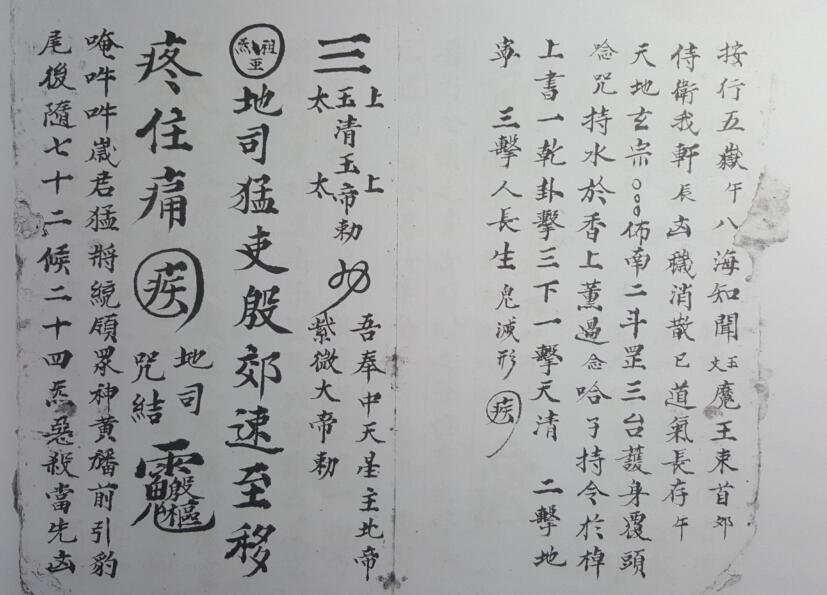 按行五嶽午八海知聞魔王束首卯
侍衛我軒辰凶穢消散巳道氣長存午
天地玄宗佈南二斗罡三台護身覆頭
念咒持水於香上薰過念哈子持令於棹
上書一乾卦擊三下一擊天清 二擊地
寕 三擊人長生 鬼滅形 疾
三
上 上
玉清玉帝勅
太 太
吾奉中天星主北帝
紫微大帝勅
祖炁 地司猛吏殷郊速至移
疼住痛 疾
地司
咒結
唵吽吽歲君猛將統領眾神黃旛前引豹
尾後隨七十二候二十四炁惡殺當先凶